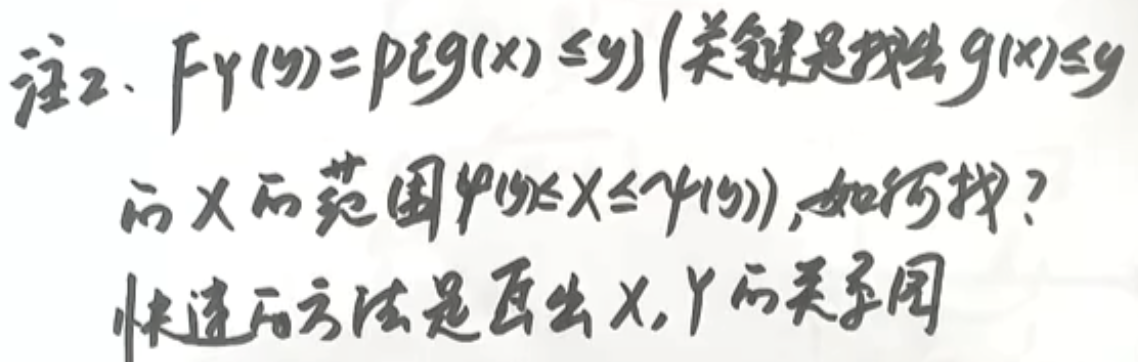 注2. F_Y(y)=P{g(X)≤y}(关键是找出g(X)≤y
的X的范围φ(y)≤X≤ψ(y)),如何找?
快速的方法是画出X,Y的关系图